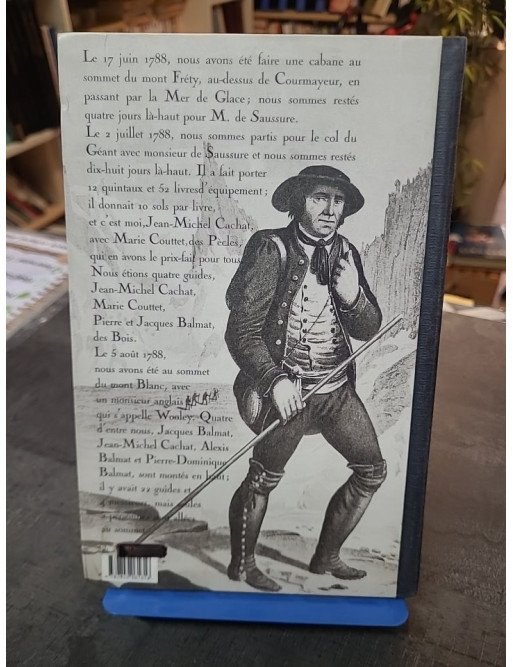 Le 17 juin 1788, nous avons été faire une cabane au
sommet du mont Fréty, au-dessus de Courmayeur, en
passant par la Mer de Glace ; nous sommes restés
quatre jours là-haut pour M. de Saussure.
Le 2 juillet 1788, nous sommes partis pour le col du
Géant avec monsieur de Saussure et nous sommes restés
dix-huit jours là-haut. Il a fait porter
12 quintaux et 52 livres d'équipement ;
il donnait 10 sols par livre,
et c'est moi, Jean-Michel Cachat,
avec Marie Couttet, des Pècles,
qui en avons le prix-fait pour tous.
Nous étions quatre guides,
Jean-Michel Cachat,
Marie Couttet,
Pierre et Jacques Balmat,
des Bois.
Le 5 août 1788,
nous avons été au sommet
du mont Blanc, avec
un monsieur anglais
qui s'appelle Wooley. Quatre
d'entre nous, Jacques Balmat,
Jean-Michel Cachat, Alexis
Balmat et Pierre-Dominique
Balmat, sont montés en haut ;
il y avait 22 guides et
4 messieurs, mais
au sommet